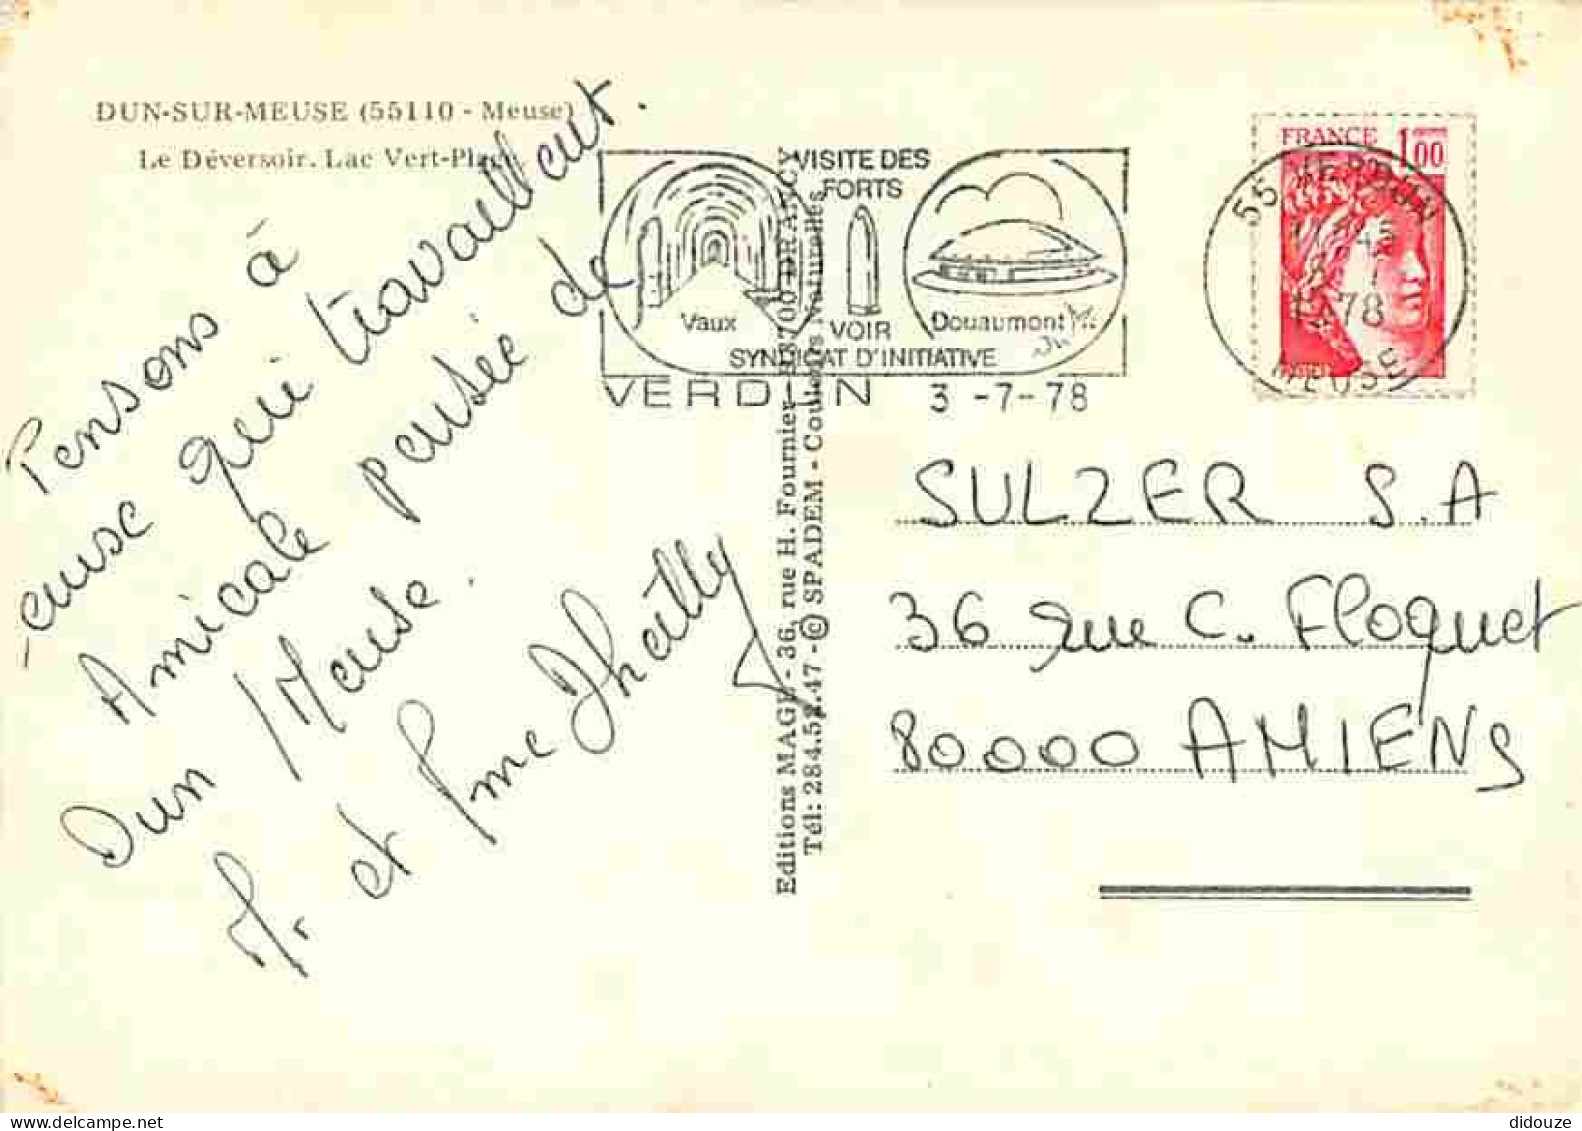 DUN-SUR-MEUSE (55110 - Meuse)
Le Déversoir. Lac Vert-Plage.
Pensons à
-euse qui travaillent.
Amicale pensée de
Dun / Meuse.
Mr et Mme
VISITE DES
FORTS
Vaux
VOIR
Douaumont
SYNDICAT D'INITIATIVE
VERDUN 3 -7- 78
FRANCE 1,00
55 VERDUN
78
MEUSE
Editions MAGE - 36, rue H. Fournier 93700 DRANCY
Tél: 284.52.47 - © SPADEM - Couleurs Naturelles
SULZER S.A
36 rue C. Floquet
80000 AMIENS
didouze